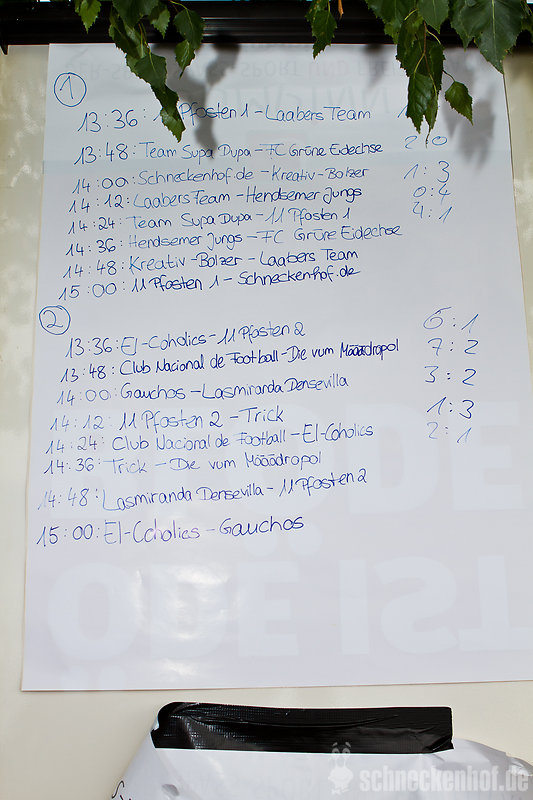 1
13:36: 11 Pfosten 1 - Laabers Team
13:48: Team Supa Dupa - FC Grüne Eidechse 2:0
14:00: Schneckenhof.de - Kreativ-Bolzer 1:3
14:12: Laabers Team - Hendsemer Jungs 0:4
14:24: Team Supa Dupa - 11 Pfosten 1 4:1
14:36: Hendsemer Jungs - FC Grüne Eidechse
14:48: Kreativ-Bolzer - Laabers Team
15:00: 11 Pfosten 1 - Schneckenhof.de
2
13:36: El-Coholics - 11 Pfosten 2 6:1
13:48: Club Nacional de Football - Die vum Möäödropol 7:2
14:00: Gauchos - Lasmiranda Densevilla 3:2
14:12: 11 Pfosten 2 - Trick 1:3
14:24: Club Nacional de Football - El-Coholics 2:1
14:36: Trick - Die vum Möäödropol
14:48: Lasmiranda Densevilla - 11 Pfosten 2
15:00: El-Coholics - Gauchos
schneckenhof.de